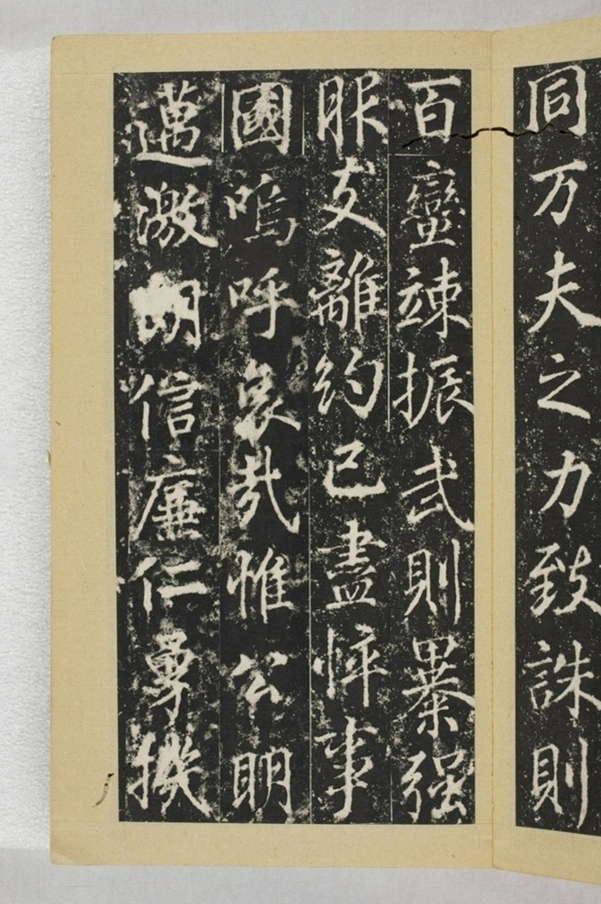 同万夫之力致誅則
百蠻竦振武則暴强
服支離約己盡悴事
國嗚呼哀哉惟公明
邁激朗信廉仁勇機